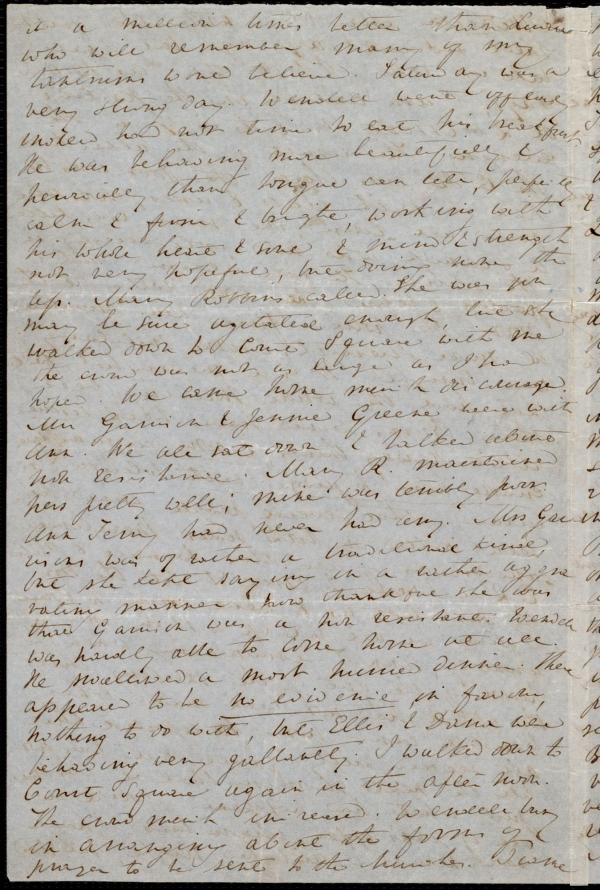 it a million times better than
who will remember many of my
tantrums I one believe. Saturday was a
very stirring day. Wendell went off early
indeed had not time to eat his breakfast
He was behaving more beautifully &
heroically than tongue can tell, perfectly
calm & firm & bright, working with
his whole heart & soul & mind & strength
not very hopeful, but doing none the
less. Mary Robbins called. She was you
may be sure agitated enough, but she
walked down to Court Square with me
the crowd was not as large as I had
hoped. We came home much discouraged.
Mrs Garrison & Jennie Greene were with
Ann. We all sat down & talked about
non resistance. Mary R. maintained
hers pretty well; mine was terribly poor
Ann Terry had never had any. Mrs Gar
risons was of rather a traditional kind,
but she kept saying in a rather aggra
vating manner how thankful she was
that Garrison was a non resistant. Wendell
was hardly able to come home at all.
He swallowed a most hurried dinner. There
appeared to be no evidence in favour,
nothing to do with, but Ellis & Dana were
behaving very gallantly. I walked down to
Court Square again in the afternoon.
The crowd much increased. Wendell busy
in arranging about the forms of
prayer to be sent to the churches. I came